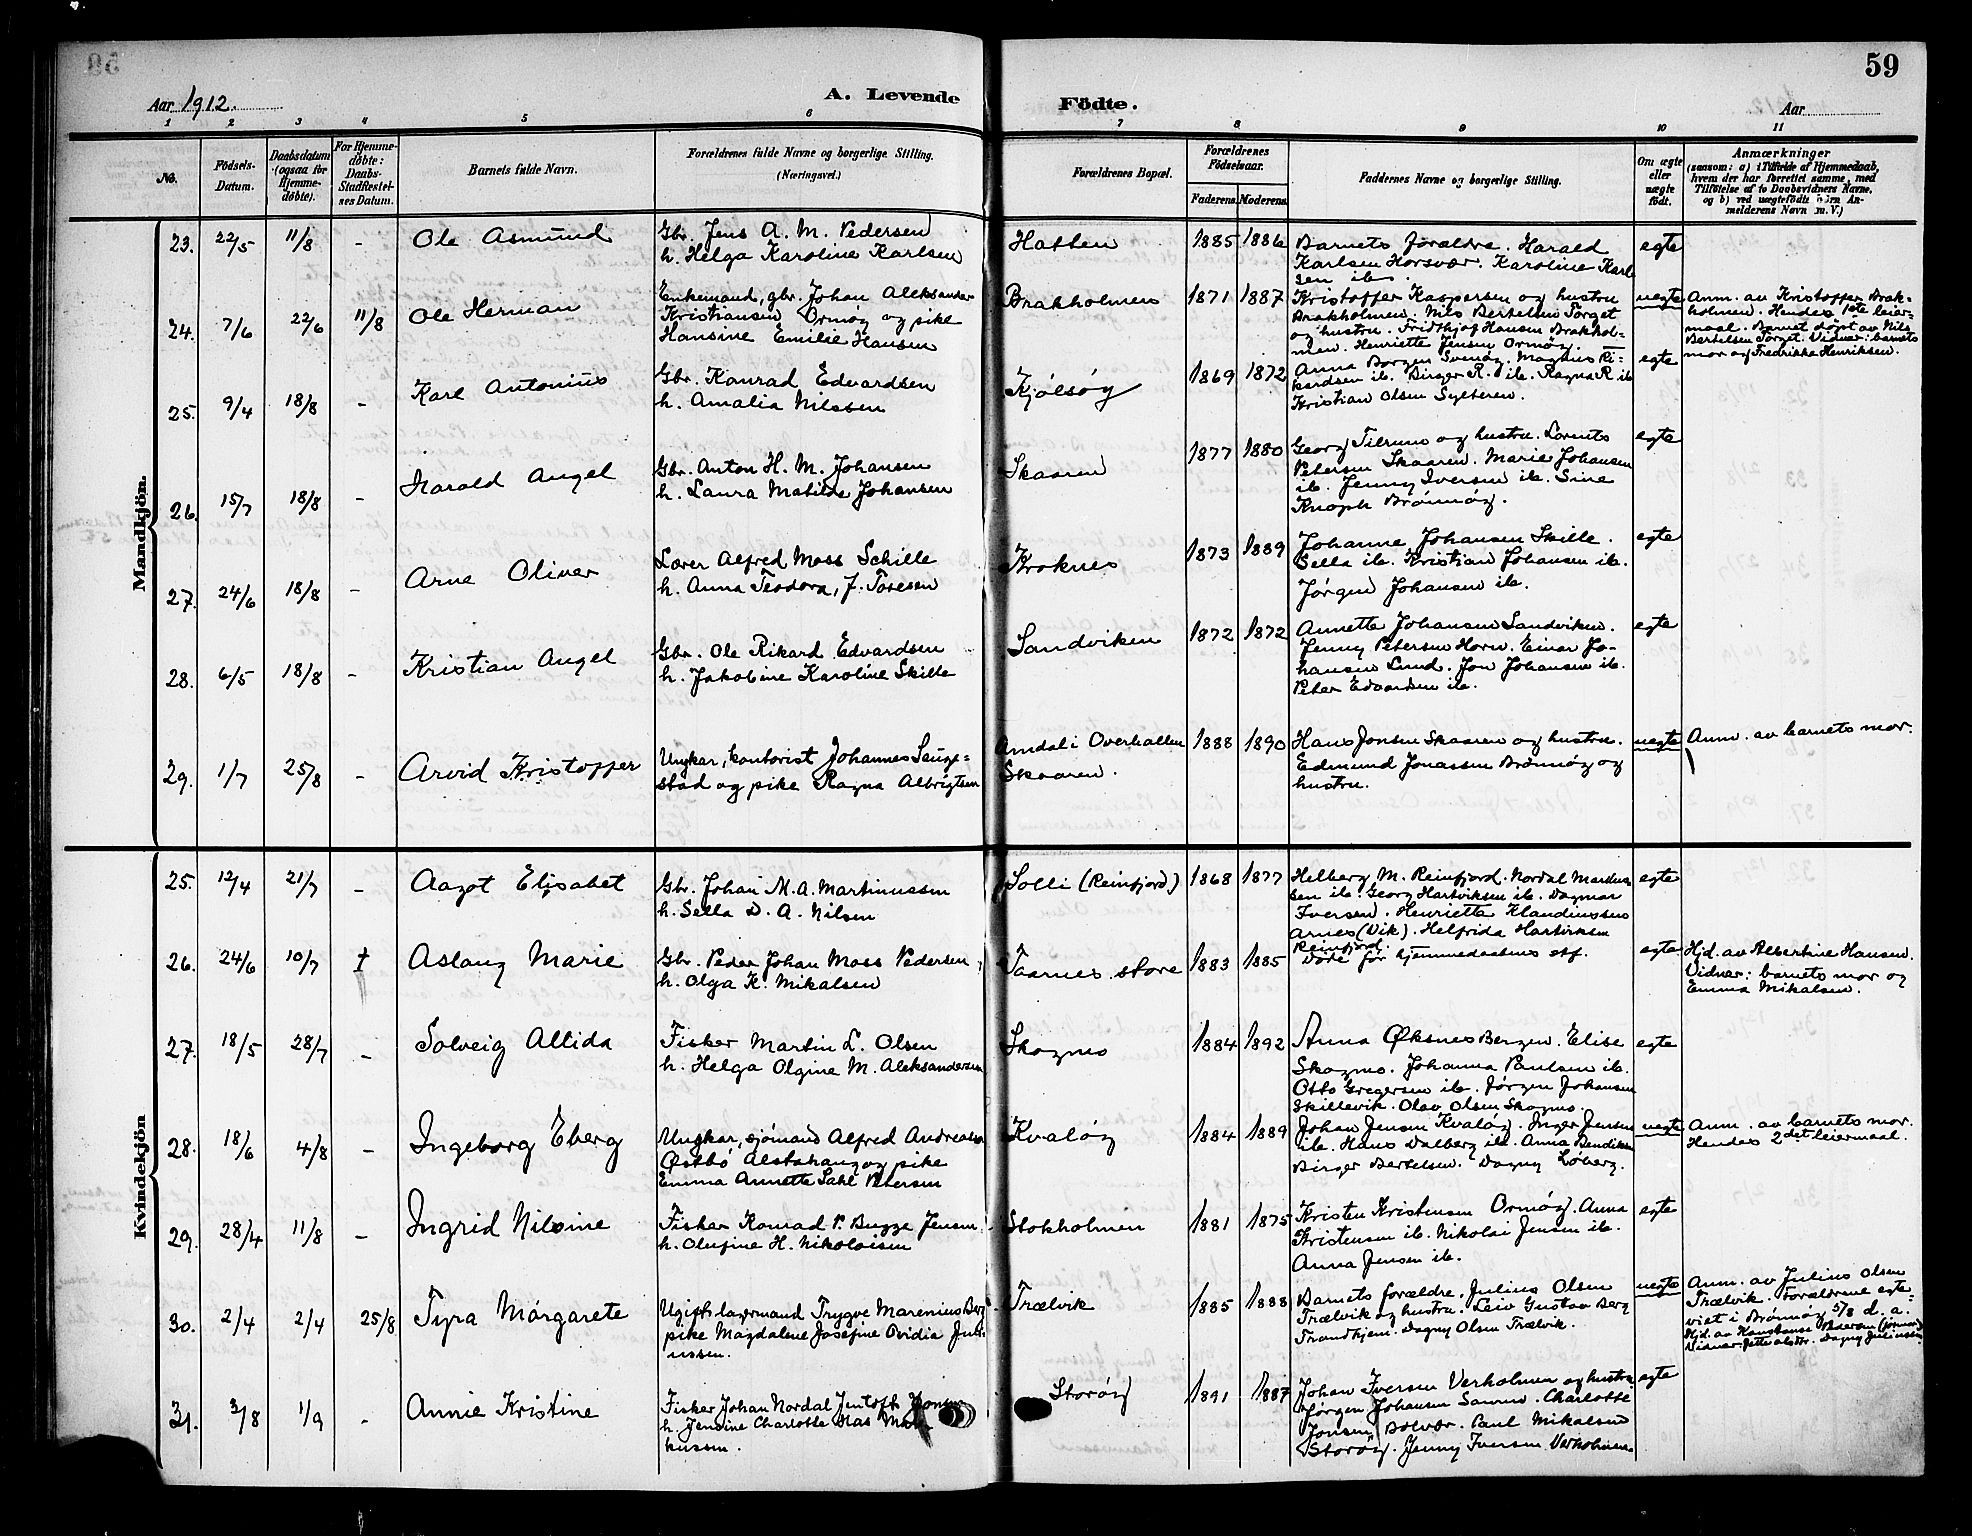 59
Aar 1912. A. Levende Födte. Aar
1 2 3 4 5 6 7 8 9 10 11
No. Födsels-Datum. Daabsdatum (ogsaa for Hjemme-døbte). For Hjemme-døbte: Daabs-Stadfæstel-ses Datum. Barnets fulde Navn. Forældrenes fulde Navne og borgerlige Stilling. (Næringsvei.) Forældrenes Bopæl. Forældrenes Födselsaar. Faderens. Moderens. Faddernes Navne og borgerlige Stilling. Om ægte eller uægte födt. Anmærkninger (saasom: a) i Tilfælde af Hjemmedaab, hvem der har forrettet samme, med Tilföielse af to Daabsvidners Navne, og b) ved uægtefödte Börn Anmelderens Navn m. V.)
Mandkjön.
23. 22/5 11/8 - Ole Asmund
Gbr. Jens A. M. Pedersen
h. Helga Karoline Karlsen
Hatten 1885 1886
Barnets forældre. Harald
Karlsen Horsvær. Karoline Karl
sen ib.
egte
24. 7/6 22/6 11/8 Ole Herman
Enkemand, gbr. Johan Aleksander
Kristiansen Ormøy og pike
Hansine Emilie Hansen
Brakholmen 1871 1887
Kristoffer Kaspersen og hustru
Brakholmen. Nils Bertelsen Torget
og hustru. Fridthjof Hansen Brakhol-
men. Henriette Jensen Ormøy.
uegte
Anm. av Kristoffer Brak-
holmen. Hendes 1ste leier-
maal. Barnet døpt av Nils
Bertelsen Torget. Vidner: barnets
mor og Fredrikke Henriksen.
25. 9/4 18/8 - Karl Antonius
Gbr. Konrad Edvardsen
h. Amalia Nilssen
Kjølsøy 1869 1872
Anna Borgen Svenøy. Magnus Ri-
kardsen ib. Birger R. ib. Ragna R ib
Kristian Olsen Sylteren.
egte
26. 15/7 18/8 - Harald Angel
Gbr. Anton H. M. Johansen
h. Laura Matilde Johansen
Skaaren 1877 1880
Georg Tilrum og hustru. Lorents
Petersen Skaaren. Marie Johansen
ib. Jenny Iversen ib. Sine
Knoph Brønnøy.
egte
27. 24/6 18/8 - Arne Oliver
Lærer Alfred Moss Schille
h. Anna Teodora, J. Toresen
Kroknes 1873 1889
Johanne Johansen Skille.
Sella ib. Kristian Johansen ib.
Jørgen Johansen ib.
egte
28. 6/5 18/8 - Kristian Angel
Gbr. Ole Rikard Edvardsen
h. Jakobine Karoline Skille
Sandviken 1872 1872
Annette Johansen Sandviken.
Jenny Petersen Horn. Einar Jo-
hansen Lund. Jon Johansen ib.
Peter Edvardsen ib.
egte
29. 1/7 25/8 - Arvid Kristoffer
Ungkar, kontorist Johannes
stad og pike Ragna Albrigtsen
Amdal i Overhallen
Skaaren.
1888 1890
Hans Jonsen Skaaren og hustru.
Edmund Jonassen Brønnøy og
hustru.
uegte
Anm. av barnets mor.
Kvindekjön
25. 12/4 21/7 - Aagot Elisabet
Gbr. Johan M. A. Martinussen
h. Sella D. A. Nilsen
Solli (Reinfjord) 1868 1877
Helberg M. Reinfjord. Nordal Martinus-
sen ib. Georg Hartviksen ib. Dagmar
Iversen. Henriette Klaudiussens
Arnes (Vik). Helfrida Hartviksen
Reinfjord.
egte
26. 24/6 10/7 † Aslaug Marie
Gbr. Peder Johan Moss Pedersen
h. Olga K. Mikalsen
Taarnes store 1883 1885
Døde før hjemmedaabens stf.
egte
Hjd. av Albertine Hansen.
Vidner: barnets mor og
Emma Mikalsen.
27. 18/5 28/7 - Solveig Allida
Fisker Martin L. Olsen
h. Helga Olgine M. Aleksandersen
Skogmo 1884 1892
Anna Øksnes Bergen. Elise
Skogmo. Johanna Paulsen ib.
Otto Gregersen ib. Jørgen Johansen
Skillevik. Olav Olsen Skogmo.
egte
28. 18/6 4/8 - Ingeborg Eberg
Ungkar, sjømand Alfred Andreassen
Østbø Alstahaug og pike
Emma Annette Sahl Petersen
Kvaløy 1884 1889
Johan Jensen Kvaløy. Inger Jensen
ib. Hans Dalberg ib. Anna Bendiksen
Birger Bertelsen. Dagny Løberg.
uegte
Anm. av barnets mor.
Hendes 2det leiermaal.
29. 28/4 11/8 - Ingrid Nilsine
Fisker Konrad P. Bugge Jensen
h. Olufine H. Nikolaisen
Stokholmen 1881 1875
Kristen Kristensen Ormøy. Anna
Kristensen ib. Nikolai Jensen ib.
Anna Jensen ib.
egte
30. 2/4 2/4 25/8 Tyra Margarete
Ugift lagermand Trygve Marenius Berg
pike Magdalene Josefine Ovidia Juli-
ussen.
Trælvik 1885 1888
Barnets forældre. Julius Olsen
Trælvik og hustru. Leiv Gustav Berg
Trondhjem. Dagny Olsen Trælvik.
uegte
Anm. av Julius Olsen
Trælvik. Forældrene egte-
viet i Brønnøy 5/8 d. a.
Hjd. av Konstanse Pedersen (jormor)
Vidner: Jette Dagny Juliussen
31. 3/8 1/9 - Annie Kristine
Fisker Johan Nordal Jentoft
h. Jensine Charlotte
kussen.
Storøy 1891 1887
Johan Iversen Verholmen og hustru
Jørgen Johansen Charlotte
Jonsen Bolvær. Paul Mikalsen
Storøy. Jenny Iversen Verholmen
egte